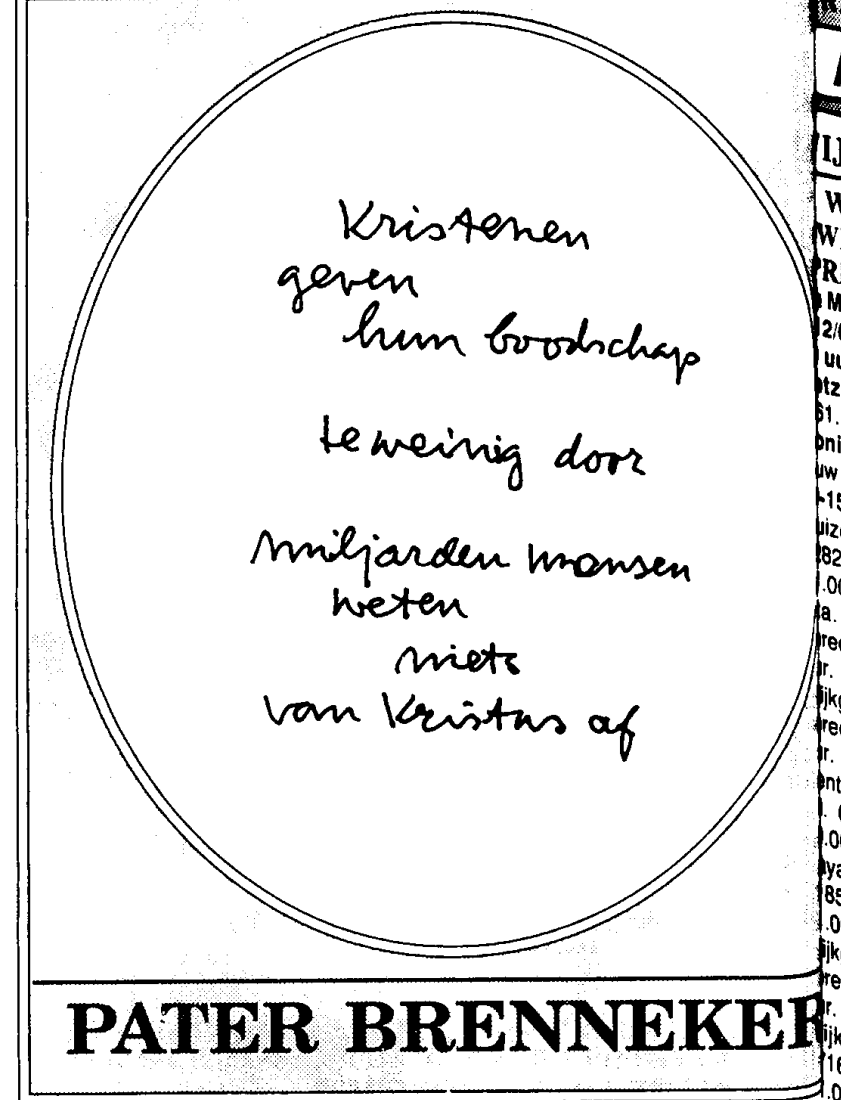 Kristenen
geven
hun boodschap
te weinig door
miljarden mensen
weten
niets
van Kristus af
PATER BRENNEKER